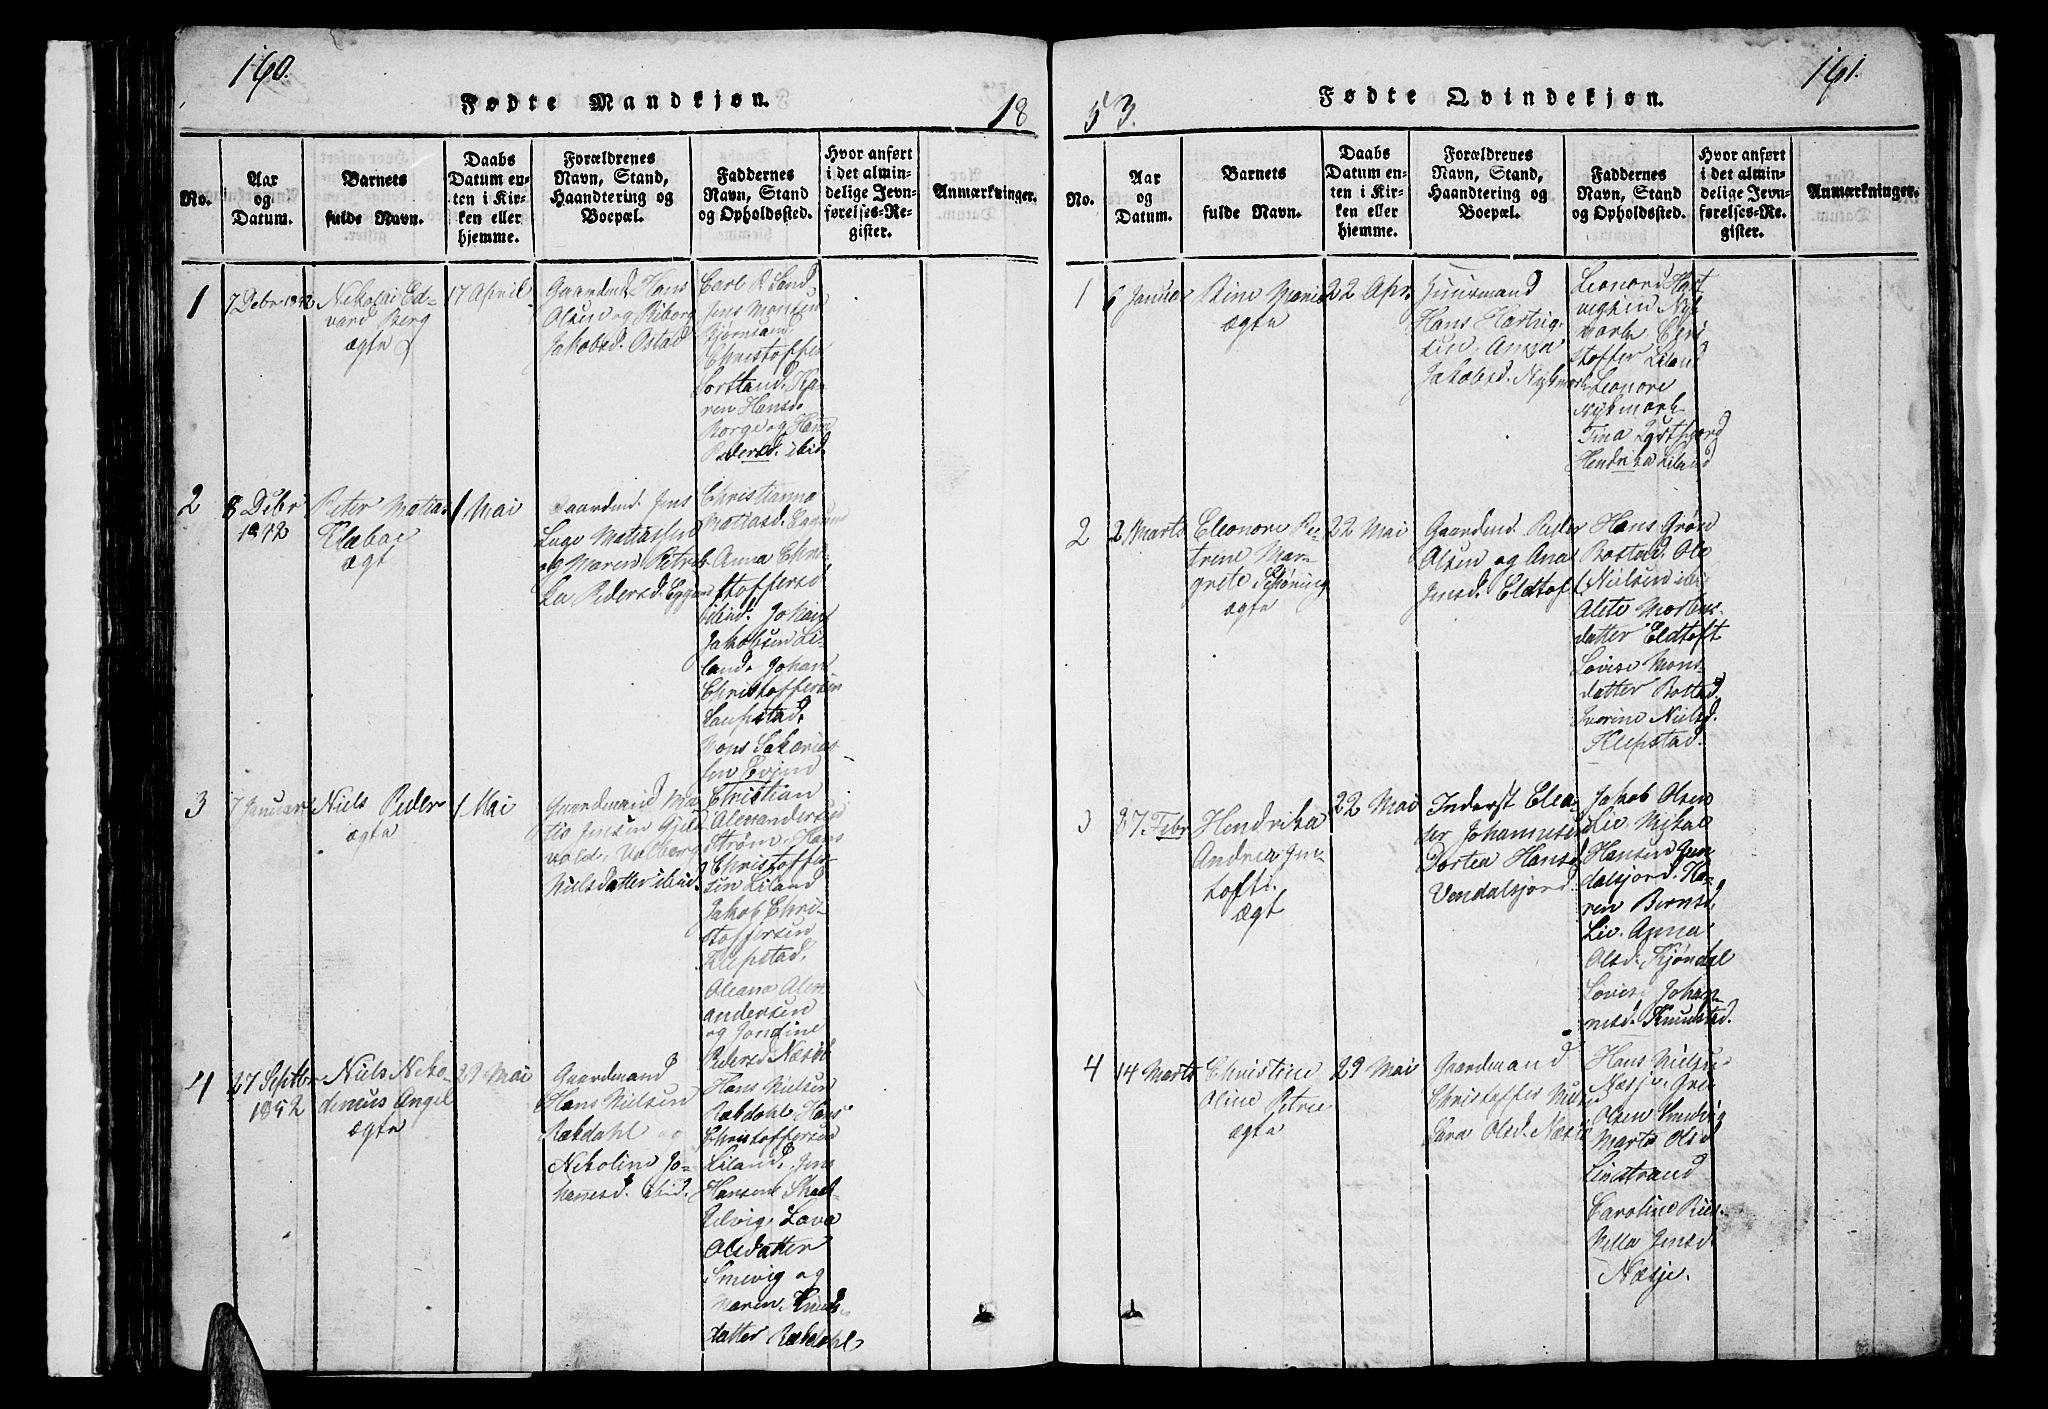 160.
Fødte Mandkjøn.
18
No.
Aar
og
Datum.
Barnets
fulde Navn.
Daabs
Datum en-
ten i Kir-
ken eller
hjemme.
Forældrenes
Navn, Stand,
Haandtering og
Boepæl.
Faddernes
Navn, Stand
og Opholdssted.
Hvor anført
i det almin-
delige Jevn-
førelses-Re-
gister.
Anmærkninger.
1
7 Debr 1852
Nikolai Ed-
vard Berg
ægte
17 April
Gaardmd Hans
Olsen og Riborg
Jakobsd. Ostad
Carl R Sand
Jens Monsen
Bjørnsand
Christoffer
Sortland. Ka-
ren Hansd.
Borge og Han
Pedersd. ibid
2
8 Debr
1852
Peter Matias
Klæboe
ægt
1 Mai
Gaardmd. Jens
Lage Matiassen
og Maren Petrik-
ka Pedersd. Eggum
Christianna
Matiasd. Eggum
Anna Chri-
stoffersd
ibid. Johan
Jakobsen Li-
land. Johan
Christoffersen
Laupstad.
Mons Sakarias-
sen Evjen
3
7 Januar
Niels Peder
ægte
1 Mai
Gaardmand Ma-
tis Jensen Gjels
vold, Valborg
Nielsdatter ibid.
Christian
Alexandersen
Strøm. Hans
Christoffer-
sen Liland
Jakob Chri-
stoffersen
Klepstad.
Oleana Alex-
andersen
og Jondine
Pedersd. Næsje
4
27 Septbr
1852
Niels Niko-
demus Angel
ægte
29 Mai
Gaardmand
Hans Nielsen
Rækdahl og
Nikoline Jo-
hannesd. ibid.
Hans Nielsen
Rækdahl. Hans
Christoffersen
Liland. Jens
Hansen Skot-
telvig. Lava
Olsdatter
Smevig og
Maren Knuds-
datter Rækdahl
161.
Fødte Qvindekjøn.
53.
No.
Aar
og
Datum.
Barnets
fulde Navn.
Daabs
Datum en-
ten i Kir-
ken eller
hjemme.
Forældrenes
Navn, Stand,
Haandtering og
Boepæl.
Faddernes
Navn, Stand
og Opholdssted.
Hvor anført
i det almin-
delige Jevn-
førelses-Re-
gister.
Anmærkninger.
1
6 Januar
Stine Maria
ægte
22 Apr.
Huusmand
Hans Hartvig-
sen, Anna
Jakobsd. Nykmark
Leonord Hart
vigsen Nyk
mark. Chri
stoffer Liland
Leonore
Nykmark
Tina Østfjord
Hendrika Liland
2
2 Marts
Eleonore Pe-
trine Mar-
grete Schøning
ægte
22 Mai
Gaardmd. Peder
Olsen og Ana
Jensd. Eldtoft
Hans Grøn
Bostad. Ole
Nielsen ibi-
Alete Morten-
datter Eldtoft
Lovise Mons
datter Bostad.
Iverine Nielsd.
Klepstad.
3
27 Febr
Hendrika
Andrea Jen-
tofti.
Ægt
22 Mai
Inderst Elea-
der Johannesen
Dortea Hansd
Vendalsjord
Jakob Olsen
Lie Mikal
Hansen Ven-
dalsjord. Ka-
ren Bernsd.
Lie. Anna
Olsd. Kjøndal
Lovise Johan-
nesd. Knutstad.
4
14 Marts
Christine
Oline Petrea
ægte
29 Mai
Gaardmand
Christoffer Niels
Lava Olsd. Næsje
Hans Nielsen
Næsje.
Olsen Smevig
Marta Olsd
Lindstrand
Caroline
Jensd.
Næsje.